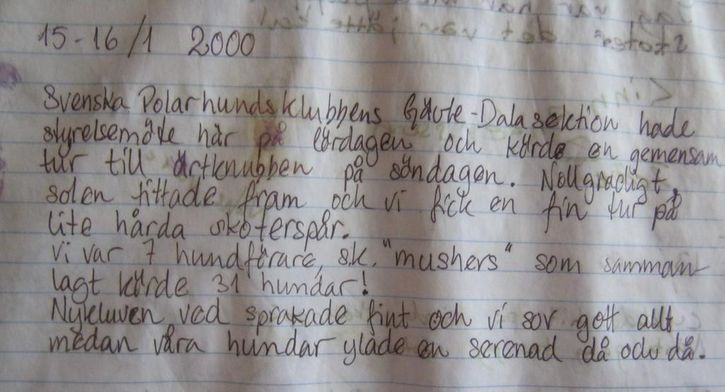 15-16/1 2000
Svenska Polarhundsklubbens Gävle-Dala sektion hade
styrelsemöte här på lördagen och körde en gemensam
tur till ärtknubben på söndagen. Nollgradigt,
solen tittade fram och vi fick en fin tur på
lite hårda skoterspår.
Vi var 7 hundförare, sk. "mushers" som samman-
lagt körde 31 hundar!
Nykluven ved sprakade fint och vi sov gott allt
medan våra hundar ylade en serenad då och då.